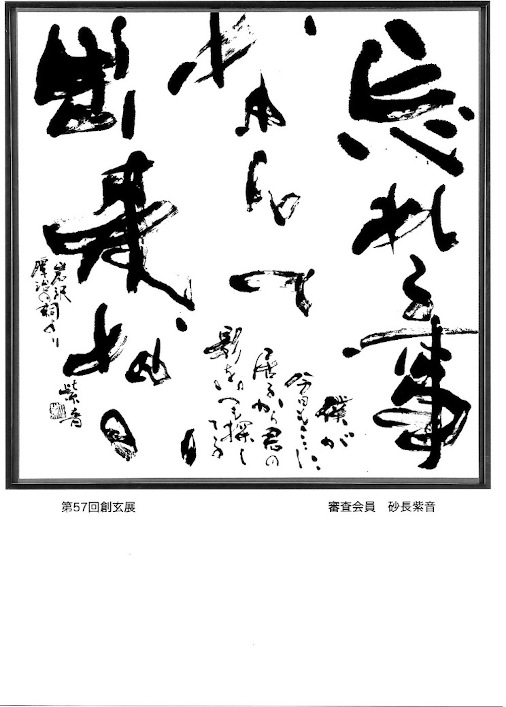 忘れる事
出来
僕が
今日もここに
居るから君の
影をいつも探し
てる
岩沢
厚治の詞より
紫音
第57回創玄展
審査会員　砂長紫音